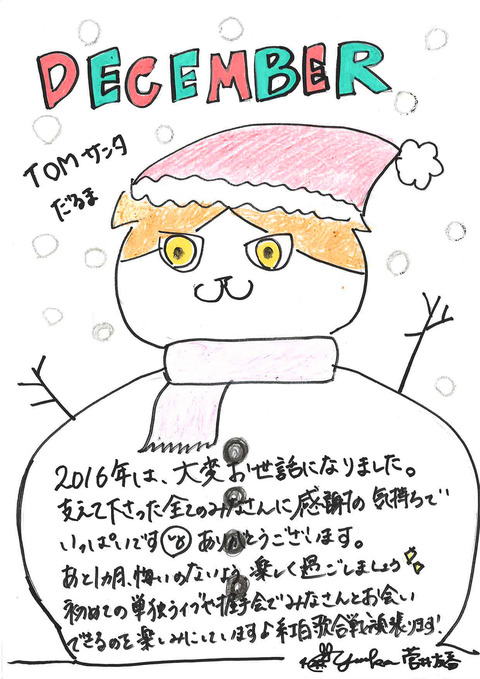 DECEMBER
TOMサンタ
だるま
2016年は、大変お世話になりました。
支えて下さった全てのみなさんに感謝の気持ちで
いっぱいです ありがとうございます。
あと1カ月、悔いのないよう楽しく過ごしましょう
初めての単独ライブや握手会でみなさんとお会い
できるのを楽しみにしています♪紅白歌合戦頑張ります!
Yuuka 菅井友香